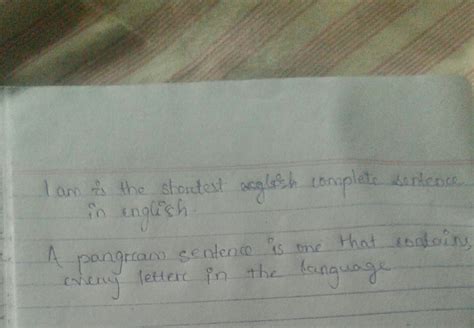 I am is the shortest english complete sentence
in english.
A pangram sentence is one that contains
every letter in the language